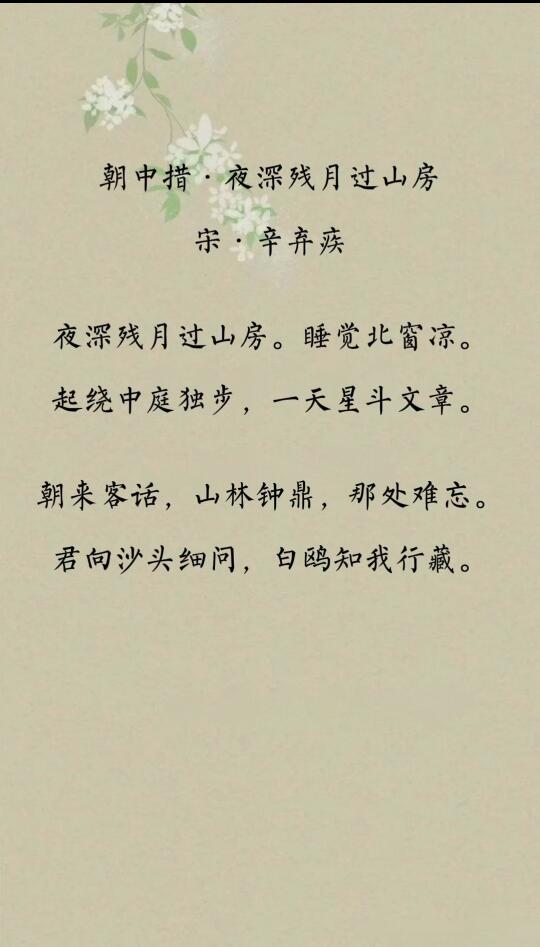 朝中措·夜深残月过山房
宋·辛弃疾
夜深残月过山房。睡觉北窗凉。
起绕中庭独步，一天星斗文章。
朝来客话，山林钟鼎，那处难忘。
君向沙头细问，白鸥知我行藏。